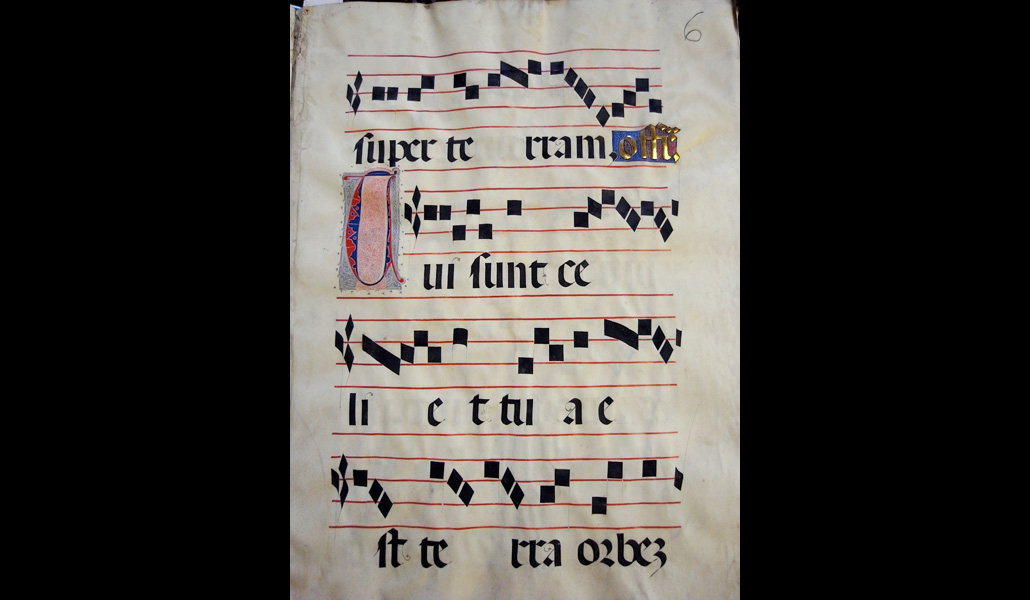 6
super te rram. offr̃.
Tui sunt ce
li et tu a e
st te rra orbez